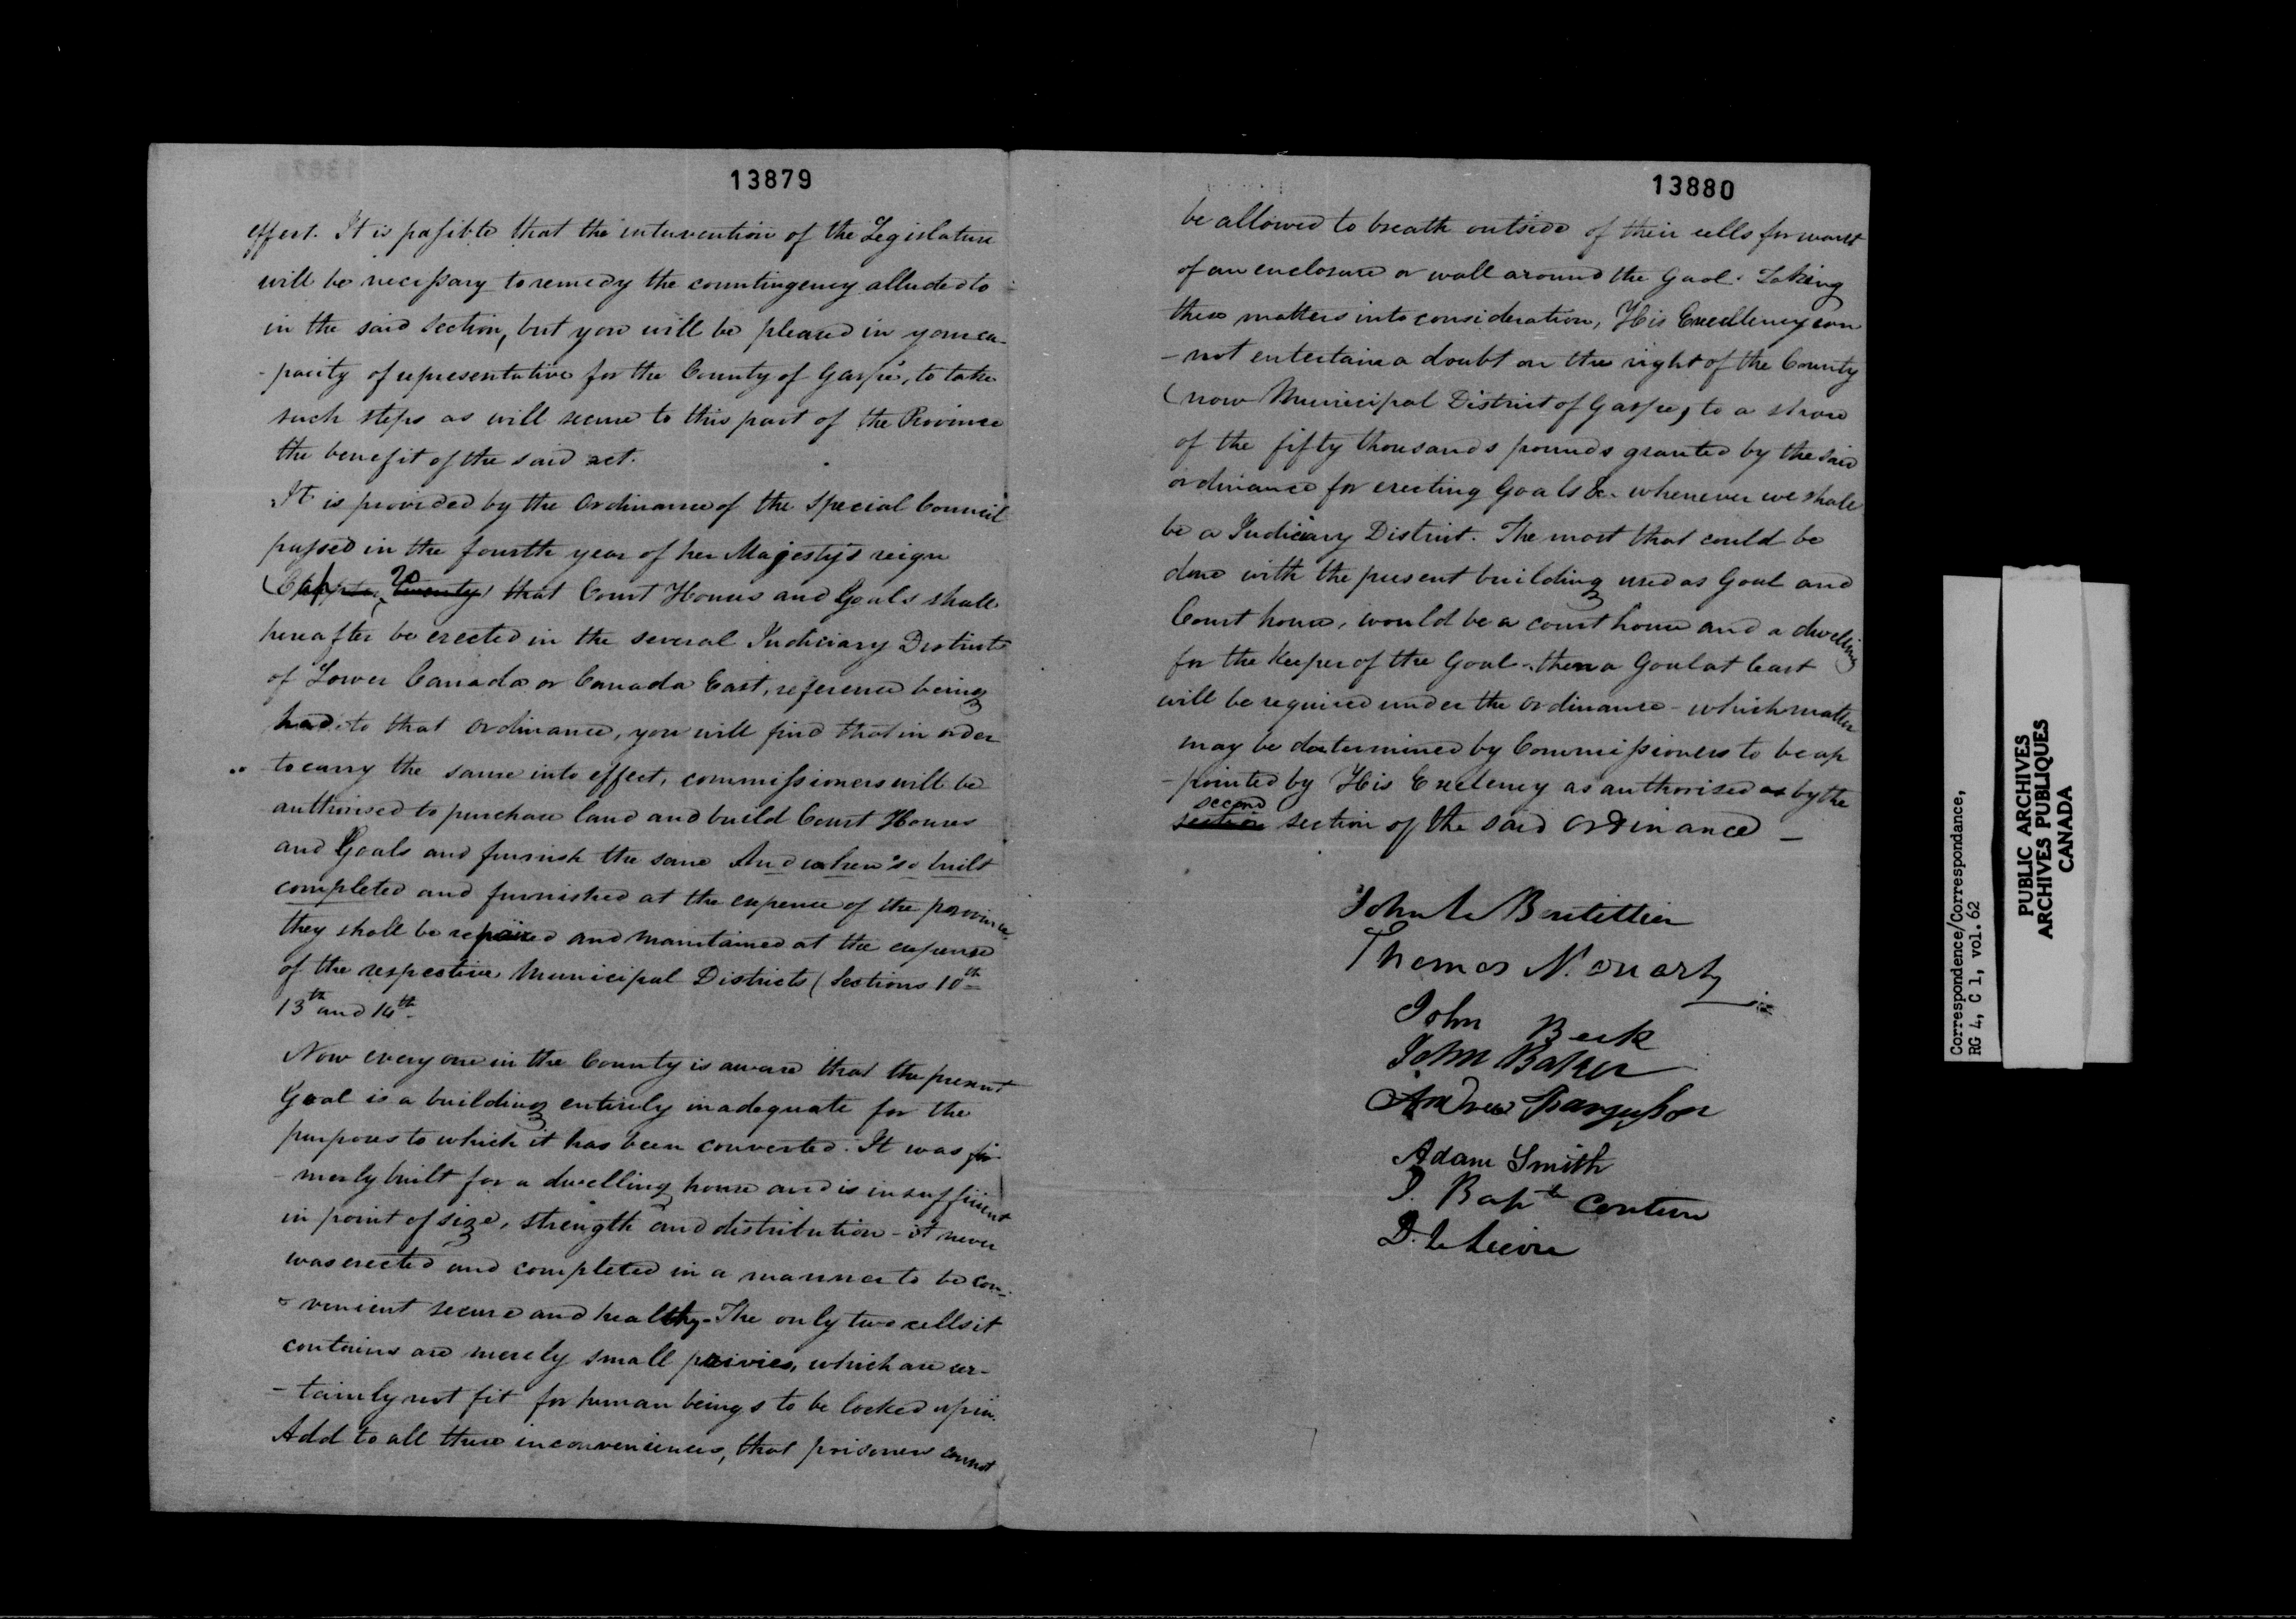 13879
effect. It is possible that the intervention of the Legislature
will be necessary to remedy the countingency alluded to
in the said section, but you will be pleased in your ca-
- pacity of representative for the County of Gaspé, to take
such steps as will secure to this part of the Province
the benefit of the said act.
It is provided by the Ordinance of the Special Council
passed in the fourth year of her Majesty's reign
(Chapter 20 twenty) that Court Houses and Goals shall
hereafter be erected in the several Judiciary Districts
of Lower Canada or Canada East, reference being
had to that Ordinance, you will find that in order
to carry the same into effect, commissioners will be
authorised to purchase land and build Court Houses
and Goals and furnish the same And when so built
completed and furnished at the expense of the province
they shall be repaired and maintained at the expense
of the respective Municipal Districts (Sections 10th
13th and 14th
Now every one in the County is aware that the present
Goal is a building entirely inadequate for the
purposes to which it has been converted. It was for
- merly built for a dwelling house and is insufficient
in point of size, strength and distribution - it never
was erected and completed in a manner to be con-
- venient secure and healthy - The only two cells it
contains are merely small privies, which are cer-
- tainly not fit for human beings to be locked up in.
Add to all these inconveniences, that prisoners cannot
13880
be allowed to breath outside of their cells for want
of an enclosure or wall around the Gaol. Taking
these matters into consideration, His Excellency can
- not entertain a doubt on the right of the County
(now Municipal District of Gaspe, to a share
of the fifty thousands pounds granted by the said
ordinance for erecting Goals &c. whenever we shall
be a Judiciary District. The most that could be
done with the present building used as Goal and
Court house, would be a court house and a dwelling
for the Keeper of the Goal - then a Goal at least
will be required under the Ordinance - which matter
may be determined by Commissioners to be ap
- pointed by His Exelency as authorised as by the
second
section section of the said Ordinance -
John Le Boutillier
Thomas N.
John Beck
John Baker
Andrew
Adam Smith
J. Bapte Couture
D. Le
Correspondence/Correspondance,
RG 4, C 1, vol. 62
PUBLIC ARCHIVES
ARCHIVES PUBLIQUES
CANADA